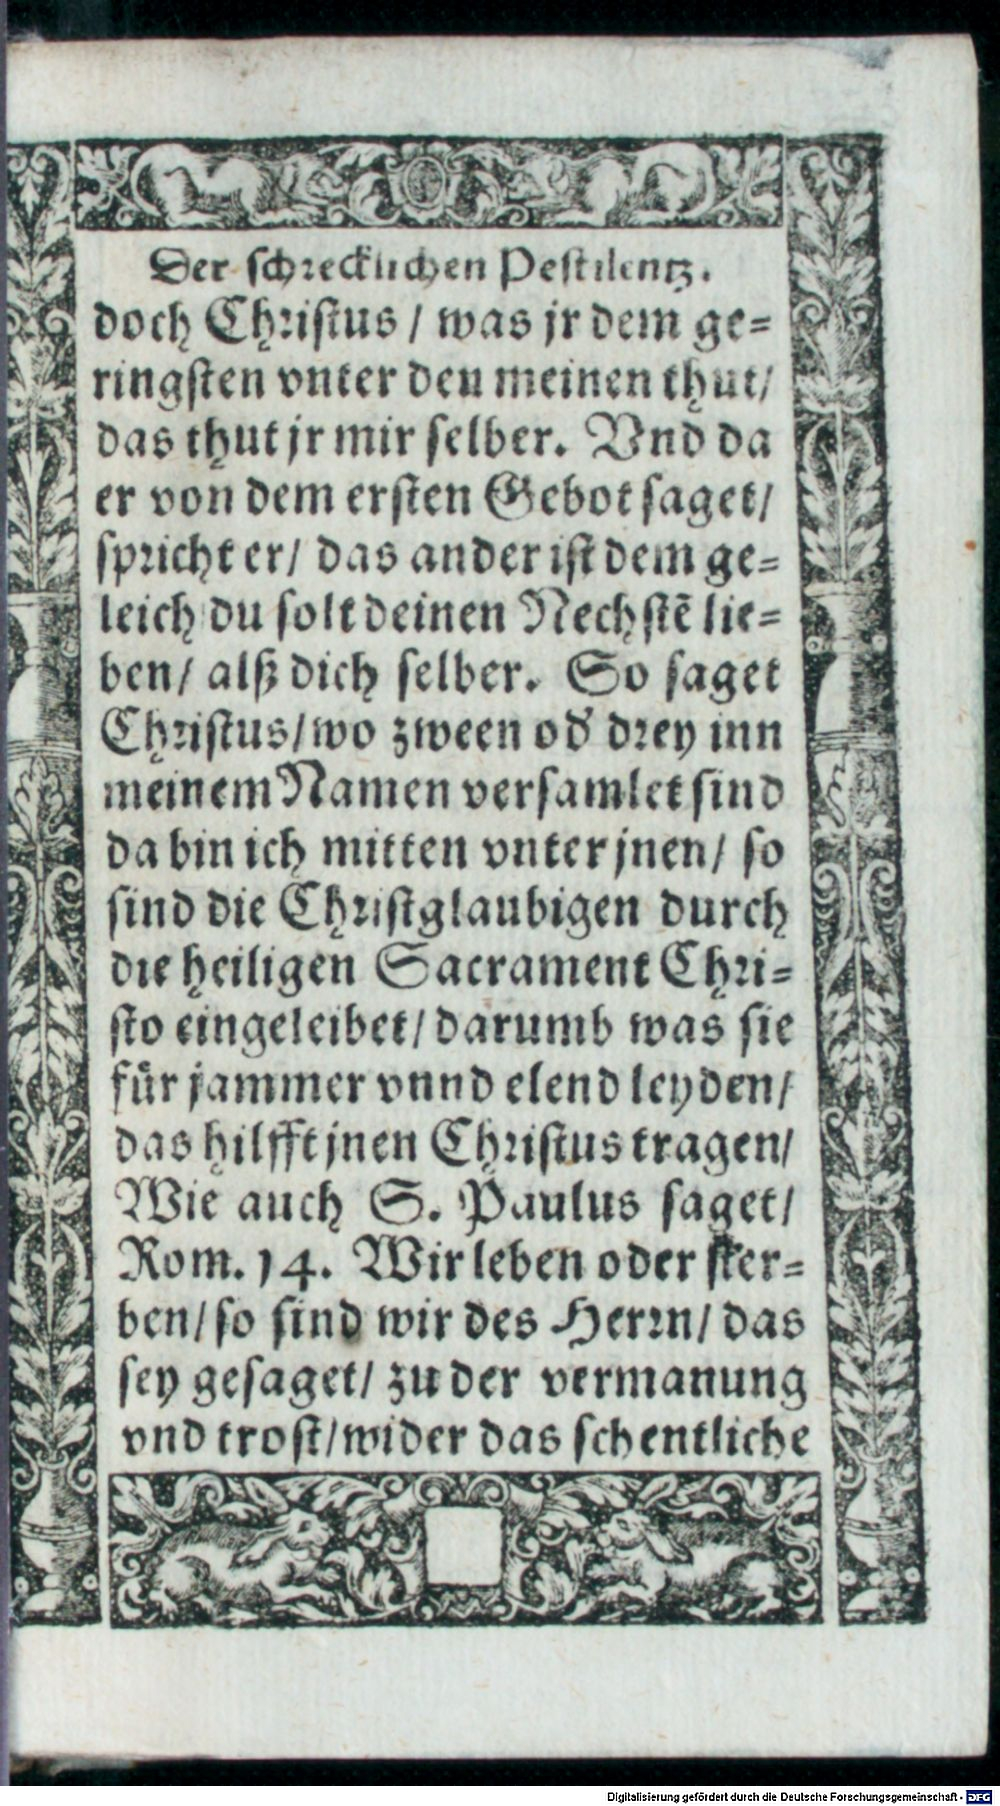 Der schrecklichen Pestilentz.
doch Christus / was jr dem ge=
ringsten vnter den meinen thut/
das thut jr mir selber. Vnd da
er von dem ersten Gebot saget/
spricht er/ das ander ist dem ge=
leich du solt deinen Nechstē lie=
ben/ alß dich selber. So saget
Christus/wo zween od' drey inn
meinem Namen versamlet sind
da bin ich mitten vnter jnen/ so
sind die Christglaubigen durch
die heiligen Sacrament Chri=
sto eingeleibet/ darumb was sie
für jammer vnnd elend leyden/
das hilfft jnen Christus tragen/
Wie auch S. Paulus saget/
Rom. 14. Wir leben oder ster=
ben/ so sind wir des Herrn/ das
sey gesaget/ zu der vermanung
vnd trost/wider das schentliche
Digitalisierung gefördert durch die Deutsche Forschungsgemeinschaft - DFG